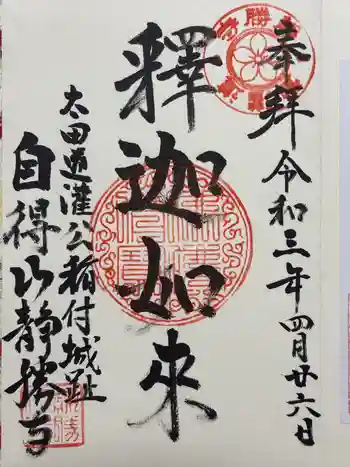 奉拝 令和三年四月廿六日
釋迦如来
太田道灌公稲付城趾
自得山静勝寺